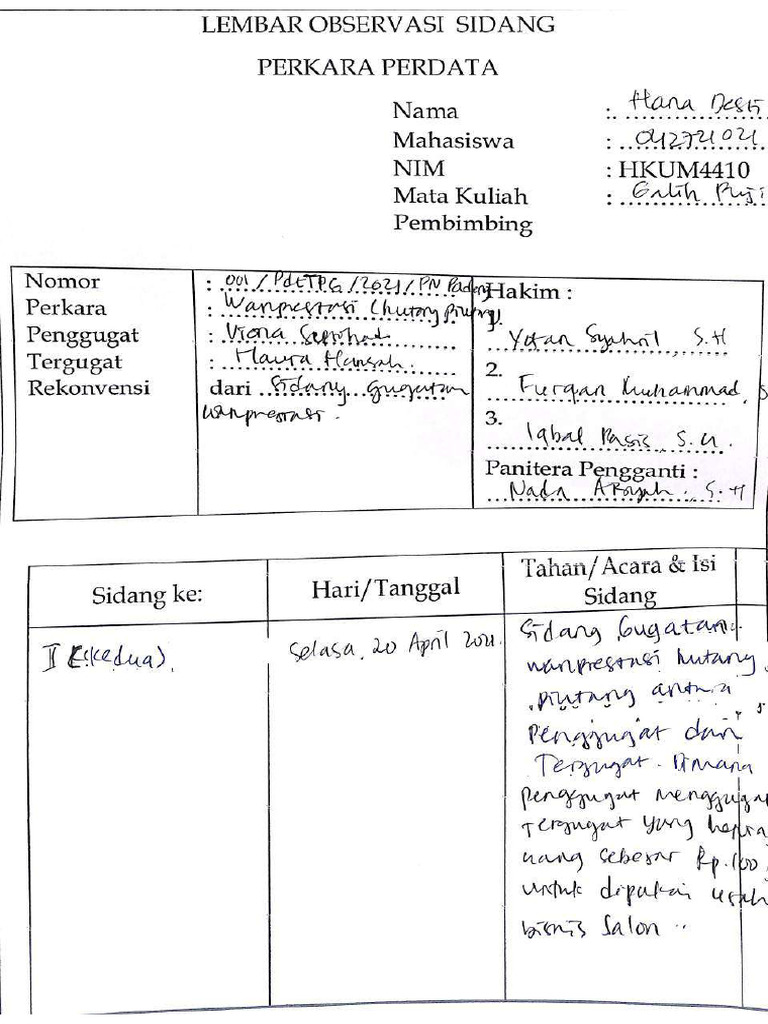 LEMBAR OBSERVASI SIDANG
PERKARA PERDATA
Nama : Hana Desti
Mahasiswa : 042721021
NIM : HKUM4410
Mata Kuliah : Galih Puji
Pembimbing
Nomor : 001/Pdt
Perkara : Wanprestasi (hutang piutang)
Penggugat : Viona
Tergugat : Haura Hamsah
Rekonvensi dari Sidang gugatan
wanprestasi.
Hakim :
1.
Syahril, S.H
2.
Furqan Muhammad, S
3.
Iqbal
Panitera Pengganti :
Nada S.H
Sidang ke:
Hari/Tanggal
Tahan/Acara & Isi
Sidang
II (kedua).
Selasa, 20 April 2021.
Sidang Gugatan
wanprestasi hutang
piutang antara
penggugat dan
Tergugat. Dimana
penggugat menggugat
Tergugat yang
uang sebesar Rp.100
untuk dipakai
bisnis salon